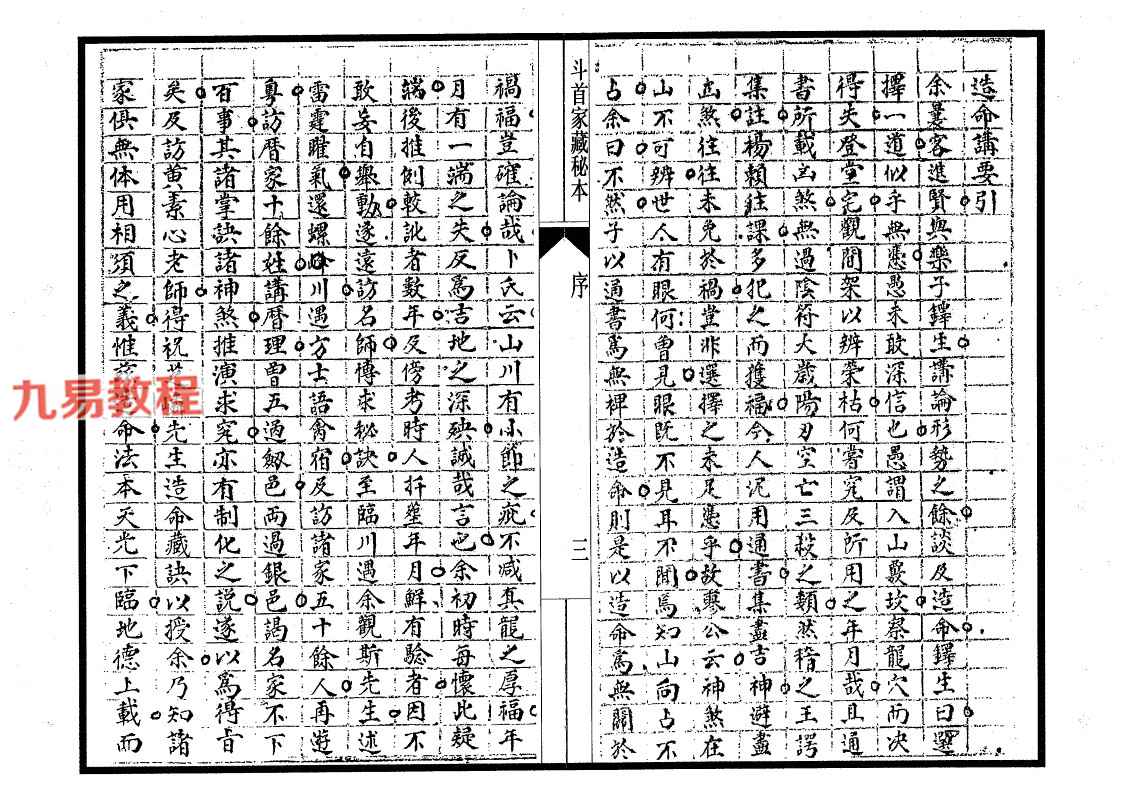 造命講要引
余曩客進賢與樂子鐸生講論形勢之餘談及造命鐸生曰選
擇一道似乎無憑愚未敢深信也愚謂入山覈坎察龍穴而決
得失登堂宅觀間架以辨榮枯何嘗究及所用之年月哉且通
書所載凶煞無過陰符大歲陽刃空亡三殺之類然稽之王諤
集註楊賴註課多犯之而獲福今人泥用通書集盡吉神避盡
凶煞往往未免於禍豈非選擇之未足憑乎故寥公云神煞在
山不可辨世人有眼何曾見眼既不見耳不聞焉知山向占不
占余曰不然子以通書爲無裨於造命則是以造命爲無關於
斗首家藏秘本
序
三
禍福豈確論哉卜氏云山川有小節之疵不減真龍之厚福年
月有一端之失反爲吉地之深殃誠哉言也余初時每懷此疑
端後推例較訛者數年及傍考時人扞塟年月鮮有驗者因不
敢妄自舉動遂遠訪名師博求秘訣至臨川遇余觀斯先生述
雷霆躍氣還螺川遇方士語禽宿及訪諸家五十餘人再遊
粵訪曆家十餘姓講曆理曾五過劔邑兩過銀邑謁名家不下
百事其諸掌訣諸神煞推演求究亦有制化之説遂以爲得旨
矣及訪黄素心老師得祝先生造命藏訣以授余乃知諸
家俱無体用相須之義惟命法本天光下臨地德上載而
九易教程